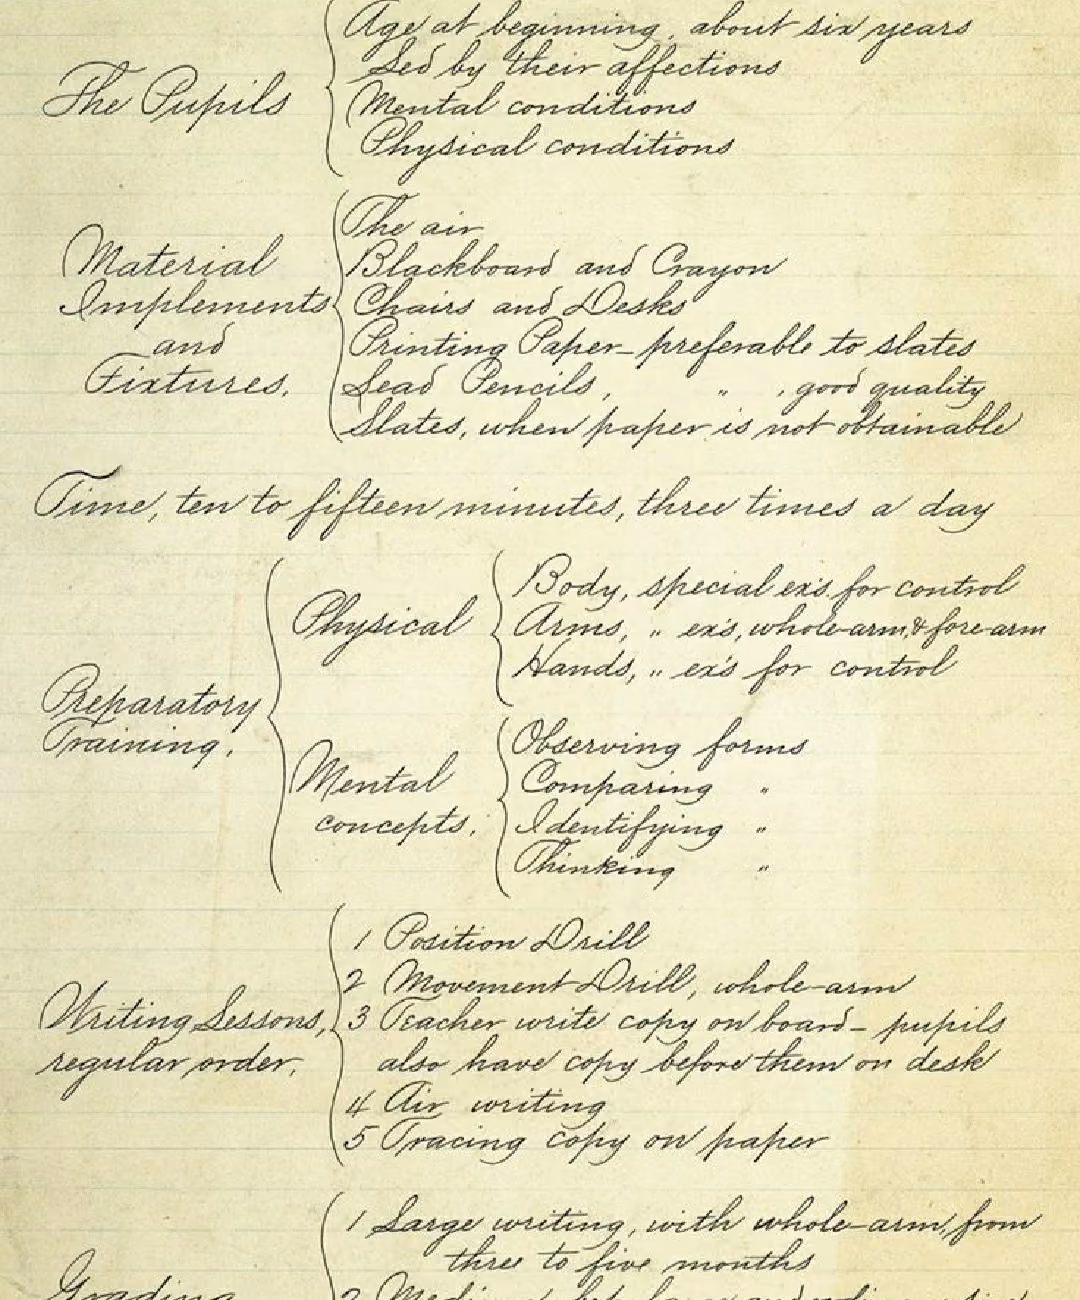 Age at beginning, about six years
Led by their affections
The Pupils
Mental conditions
Physical conditions
The air
Material
Blackboard and Crayon
Implements
Chairs and Desks
and
Printing Paper — preferable to slates
Fixtures.
Lead Pencils, " , good quality
Slates, when paper is not obtainable
Time, ten to fifteen minutes, three times a day
Body, special ex's. for control
Physical
Arms, " ex's, whole-arm, & fore-arm
Hands, " ex's for control
Preparatory
Training.
Observing forms
Mental
Comparing "
concepts.
Identifying "
Thinking "
1 Position Drill
2 Movement Drill, whole-arm
Writing Lessons,
3 Teacher write copy on board — pupils
regular order.
also have copy before them on desk
4 Air writing
5 Tracing copy on paper
1 Large writing, with whole-arm, from
three to five months
Grading
2